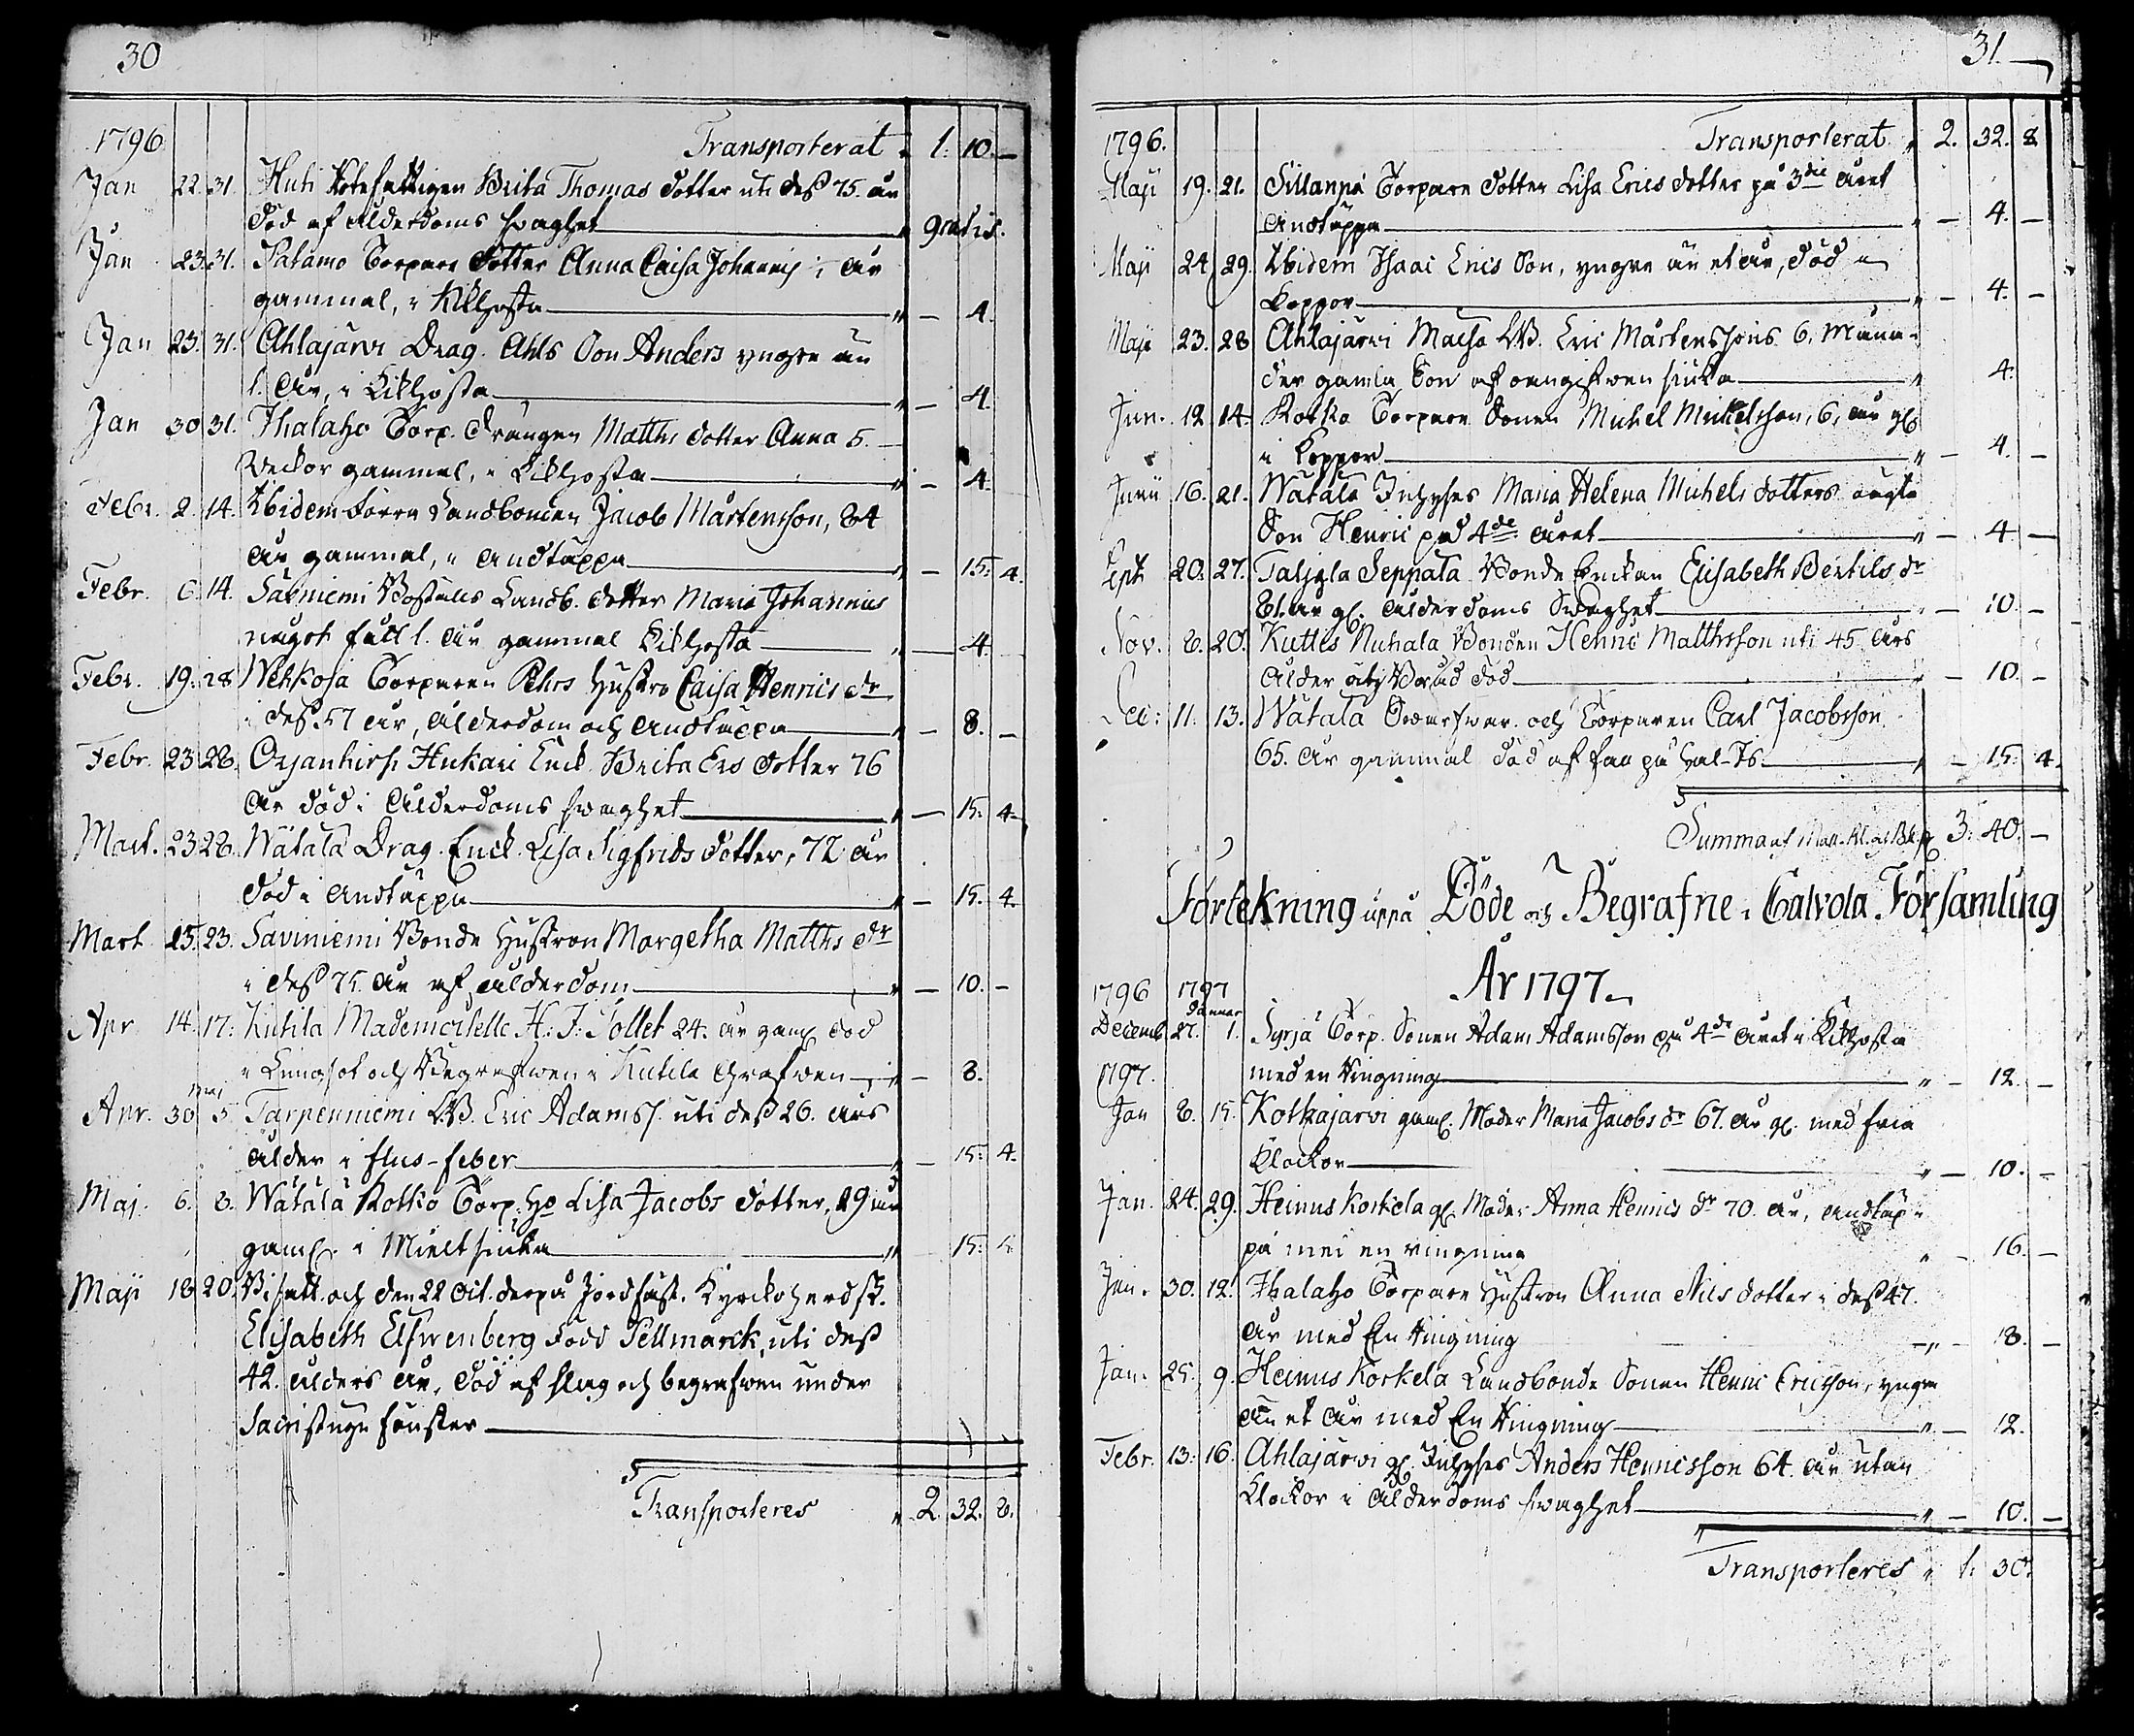 30
1796 Transporterat " 1. 10. —
Jan 22. 31. Huti Rotefattigen Brita Thomas dotter uti dess 75. år
död af ålderdoms swaghet " gratis.
Jan 23. 31. Salamo Torpare dotter Anna Caisa Johannis 1 år
gammal, i Kikhosta " — 4.
Jan 23. 31. Ahlajärvi Drag. Ahls Son Anders yngre än
1. år, i Kikhosta " — 4.
Jan 30 31. Ihalaho Torp. drängen Matths dotter Anna 5.
Weckor gammal, i Kikhosta " — 4.
Febr. 2. 14. Ibidem Förra Landbonden Jacob Mårtensson, 84
år gammal, i andtäppa " — 15. 4.
Febr. 6. 14. Saviniemi Boställs Landb. dotter Maria Johannis
något full 1. år gammal Kikhosta " — 4.
Febr. 19. 28 Wehkoja Torparen Pehrs hustro Caisa Henrics dr
i dess 57 år, ålderdom och andtäppa " — 8. —
Febr. 23 28. Orjanhirsi Hukari Enck. Brita Ers dotter 76
år död i ålderdoms swaghet " — 15. 4.
Mart. 23 28. Wätälä Drag. Enck. Lisa Sigfrids dotter, 72 år
död i andtäppa " — 15. 4.
Mart 15. 23. Saviniemi Bonde hustron Margetha Matths dr
i dess 75. år af ålderdom " — 10. —
Apr 14. 17. Kutila Mademoiselle H: J: Tollet 24. år gaml död
i Lungsot och Begrafwen i Kutila Grafwen " — 8.
maj
Apr. 30 5 Tarpenniemi LB. Eric Adamss. uti dess 26. års
ålder i flus-feber " — 15. 4.
Maj. 6. 8. Wätälä Kotko Torp. ho Lisa Jacobs dotter, 29 år
gaml. i Mieltsiuka " 15. 4.
Maji 18 20. Bisatt och den 22 Oct. derpå Jordfäst. Kyrckoherdsk.
Elisabeth Elfwenberg född Pellmarck, uti dess
42. ålders år, död af slag och begrafwen under
Sacristuge fönster
Transporteres " 2. 32. 8.
31.
1796. Transporterat " 2. 32. 8
Maji 19. 21. Sillanpä Torpare dotter Lisa Erics dotter på 3die året
andtäppa " — 4. —
Maji 24. 29. Ibidem Isaac Erics Son, yngre än et år, död i
Koppor " — 4. —
Maji 23. 28 Ahlajärwi Maesa LB. Eric Mårtenssons 6. måna-
der gamla Son af oangifwen siuka " 4.
Jun. 12 14. Kotko Torpare Sonen Michel Michelsson, 6. år gl
i Koppor " — 4. —
Junii 16. 21. Wätälä Inhyses Maria Helena Michels dotters oägta
Son Henric på 4de året " — 4. —
Sept. 20. 27. Taljala Seppälä Bonde Enckan Elisabeth Bertils dr
81. år gl. ålderdoms Swaghet " — 10. —
Nov. 8. 20. Kuttes Nuhala Bonden Henric Matthsson uti 45 års
ålder död " — 10. —
11. 13. Wätälä och Torparen Carl Jacobsson
65. år gammal död af " — 15. 4.
Summa 3. 40. —
Förtekning uppå Döde och Begrafne i Calvola Församling
År 1797.
1796 1797
Januar
Decemb. 27. 1. Syrjä Torp. Sonen Adam Adamsson på 4de året i Kikhosta
1797. med en Ringning " — 12. —
Jan 8. 15. Kotkajarvi gaml. Moder Maria Jacobs dr 67. år gl. med fria
Klockor " — 10. —
Jan. 24. 29. Heinus Korkela gl. Moder Anna Henrics dr 70. år, andtäp-
pa med en ringning " — 16. —
Jan. 30. 12. Ihalaho Torpare hustron Anna Nils dotter i dess 47.
år med En Ringning — " 18. —
Jan. 25. 9. Heinus Korkela Landbonde Sonen Henric Ericsson, yngre
än et år med En Ringning " — 12.
Febr. 13. 16. Ahlajärwi gl. Inhyses Anders Henricsson 64. år utan
Klockor i ålderdoms swaghet " — 10. —
Transporteres " 1. 30.